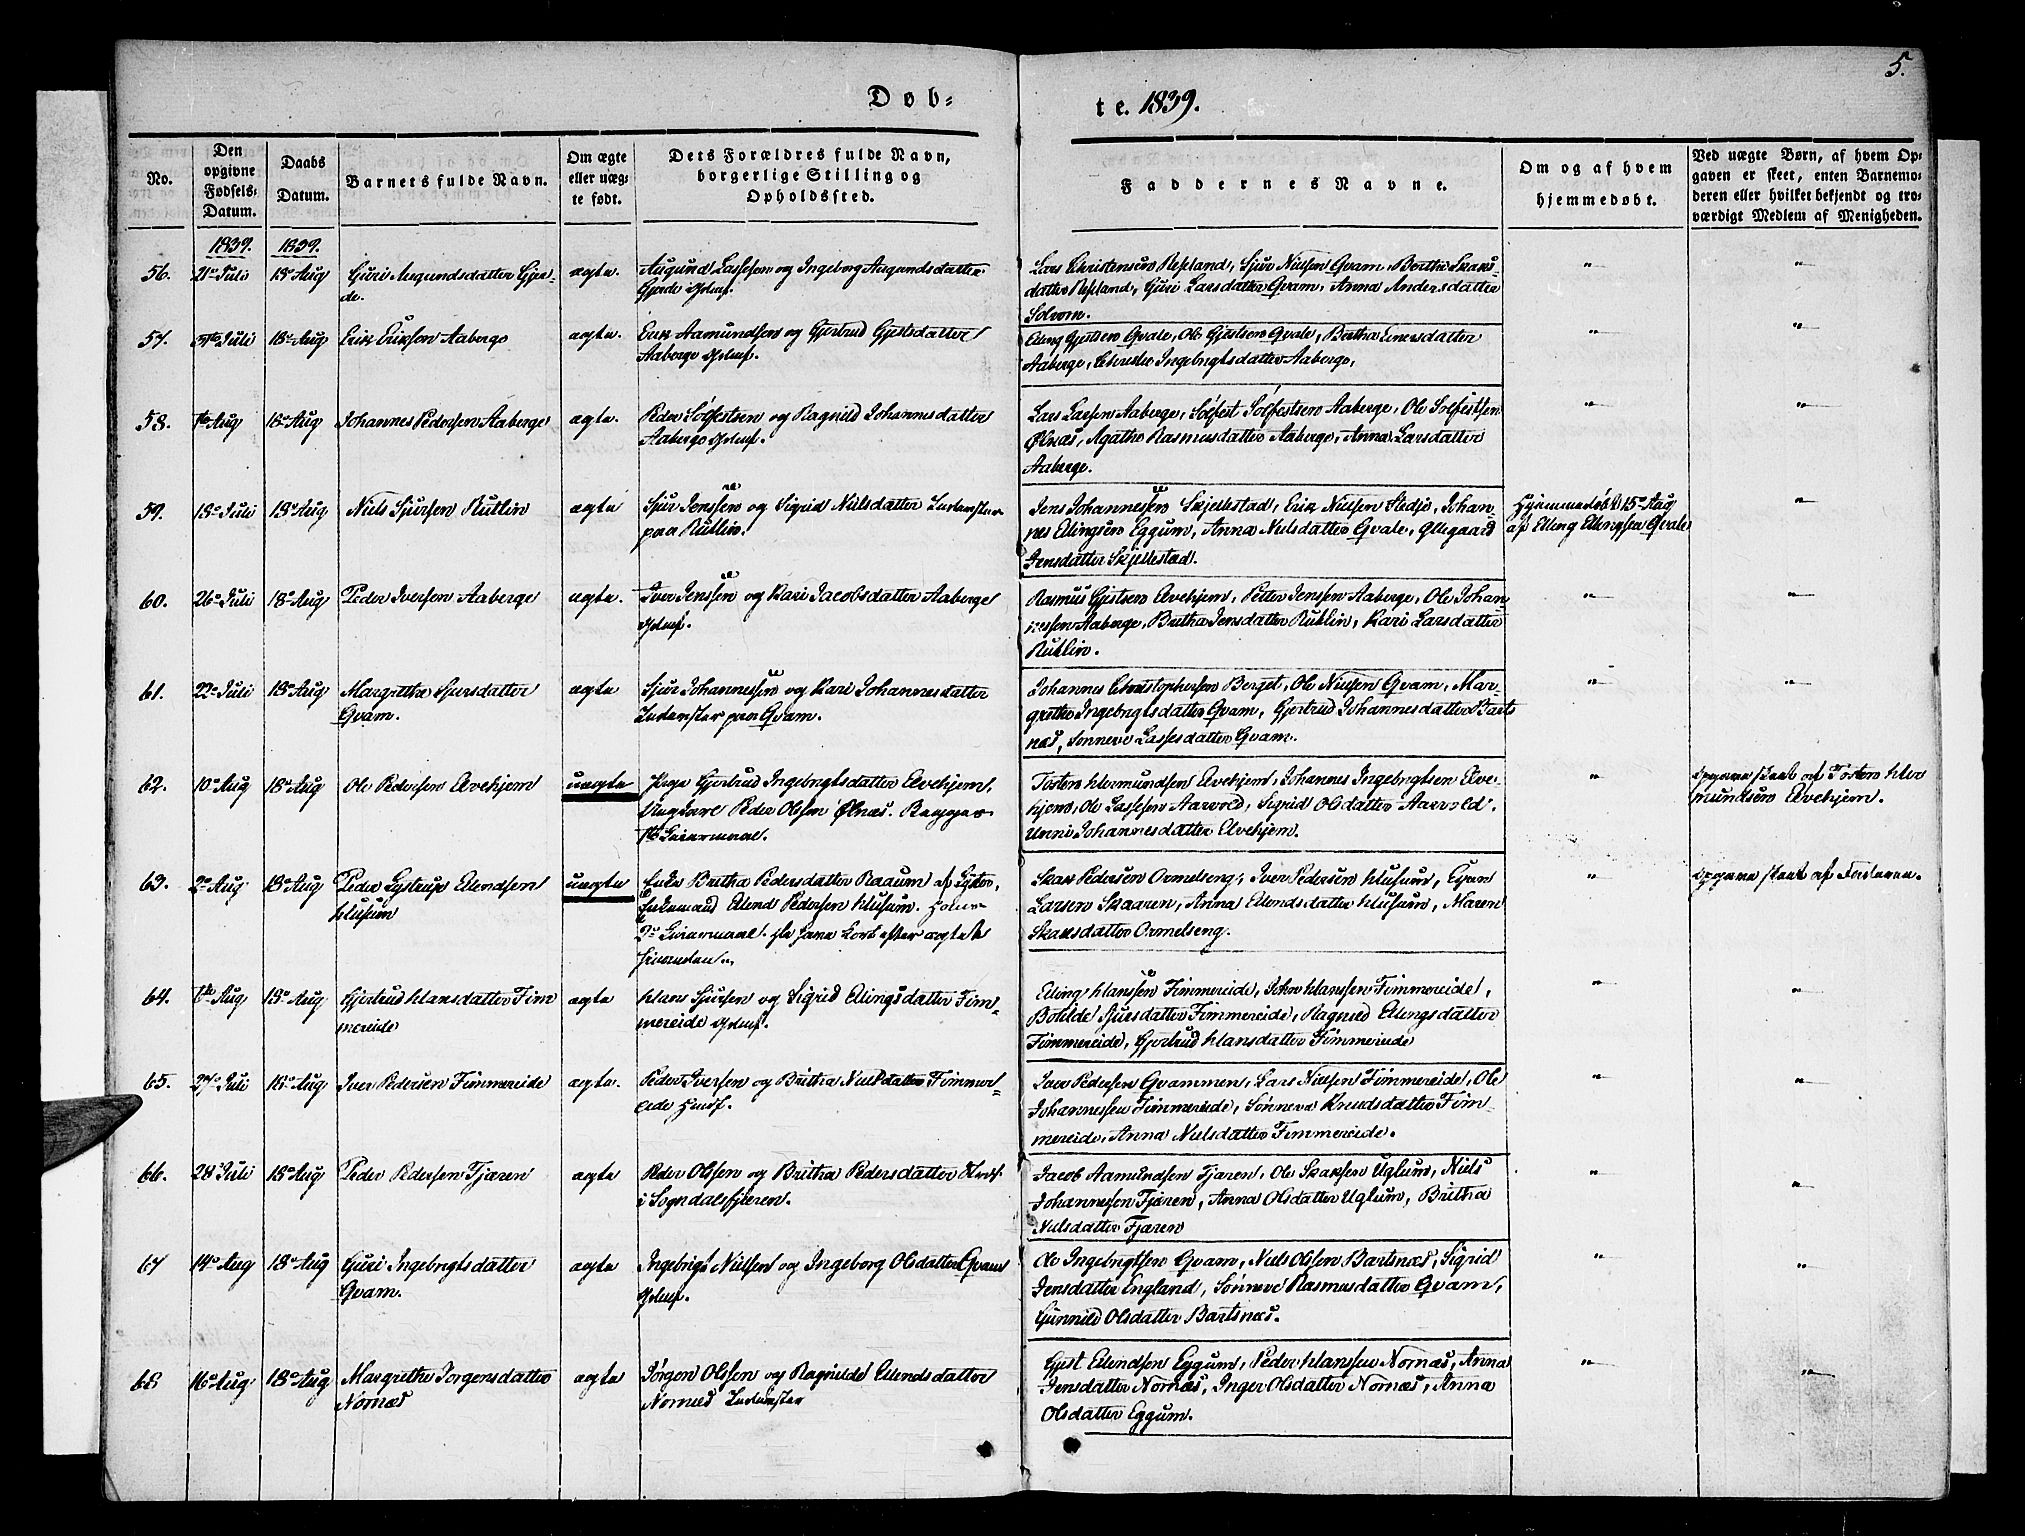 5.
Døb-
te. 1839.
No.
Den opgivne Fødsels-Datum.
Daabs Datum.
Barnets fulde Navn.
Om ægte eller uæg-te født.
Dets Forældres fulde Navn, borgerlige Stilling og Opholdssted.
Faddernes Navne.
Om og af hvem hjemmedøbt.
Ved uægte Børn, af hvem Op-gaven er skeet, enten Barnemo-deren eller hvilket bekjendt og tro-værdigt Medlem af Menigheden.
1839. 1839.
56. 21de Juli 18de Aug Guri Augundsdatter Gjer-
de.
ægte. Augund Lassesen og Ingeborg Augundsdatter
Gjerde
Lars Christensen Nesland, Sjur Nielsen Qvam, Bertha Skaks-
datter Nesland, Guri Larsdatter Qvam, Anna Andersdatter
Solvorn.
57. Juli 18de Aug Erik Eriksen Aaberge
ægte. Erik Aamundsen og Gjertrud Gjestsdatter
Aaberge
Elling Gjestsen Qvale, Ole Gjestsen Qvale, Bertha
Aaberge, Ingebrigtsdatter Aaberge,
58. Aug 18de Aug Johannes Pedersen Aaberge
ægte. Peder Solfestsen og Ragnild Johannesdatter
Aaberge
Lars Larsen Aaberge, Solfest Solfestsen Aaberge, Ole Solfestsen
Ølnæs, Agathe Rasmusdatter Aaberge, Anna Larsdatter
Aaberge.
59. 18de Juli 18de Aug Niels Sjursen Rutlin
ægte Sjur Jenssen og Sigrid Nielsdatter
paa Rutlin.
Jens Johannessen Skjellestad, Erik Nielsen Stedje, Johan-
nes Ellingsen Eggum, Anna Nielsdatter Qvale,
Jensdatter Skjellestad.
Hjemmedøbt 15de Aug
af Elling Ellingsen Qvale
60. 26de Juli 18de Aug Peder Iversen Aaberge
ægte. Iver Jenssen og Kari Jacobsdatter Aaberge
Rasmus Gjestsen Elvehjem, Petter Jenssen Aaberge, Ole Johan-
nessen Aaberge, Britha Jensdatter Rutlin, Kari Larsdatter
Rutlin.
61. 22de Juli 18de Aug Margretha Sjursdatter
Qvam.
ægte Sjur Johannessen og Kari Johannesdatter
paa Qvam.
Johannes Christophersen Berget, Ole Nielsen Qvam, Mar-
grethe Ingebrigtsdatter Qvam, Gjertrud Johannesdatter Barts
næs, Sønneve Lassesdatter Qvam.
62. 10de Aug 18de Aug Ole Pedersen Elvehjem
uægte Pige Gjertrud Ingebrigtsdatter Elvehjem,
Ungkarl Peder Olssen Ølnæs. Begges
1ste Leiermaal.
Tosten Hermundsen Elvehjem, Johannes Ingebrigtsen Elve-
hjem, Ole Lassesen Aarvold, Sigrid Olsdatter Aarvold,
Unni Johannesdatter Elvehjem.
Opgaven skeet af Tosten Her
mundsen Elvehjem.
63. 2de Aug 18de Aug Peder Lystrup Erlendsen
Husum
uægte Enke Britha Pedersdatter Raaum af
Enkemand Erlend Pedersen Husum.
2de Leiermaal.
Skak Pedersen Ormelseng, Iver Pedersen Husum,
Larsen Skaaren, Anna Erlendsdatter Husum, Maren
Skaksdatter Ormelseng.
Opgaven skeet af Forældrene.
64. Aug 18de Aug Gjertrud Hansdatter Fim
mereide
ægte Hans Sjursen og Sigrid Ellingsdatter Fim-
mereide
Elling Hanssen Fimmereide, John Hanssen Fimmereide,
Bothilde Sjursdatter Fimmereide, Ragnild Ellingsdatter
Fimmereide, Gjertrud Hansdatter Fimmereide
65. 27de Juli 18de Aug Iver Pedersen Fimmereide
ægte. Peder Iversen og Britha Nielsdatter Fimmer-
eide
Pedersen Qvammen, Lars Nielsen Fimmereide, Ole
Johannessen Fimmereide, Sønneva Knudsdatter Fim-
mereide, Anna Nielsdatter Fimmereide.
66. 28de Juli 18de Aug Peder Pedersen Fjæren
ægte Peder Olssen og Britha Pedersdatter
i Sogndalsfjæren.
Jacob Aamundsen Fjæren, Ole Skaksen Uglum, Niels
Johannessen Fjæren, Anna Olsdatter Uglum, Britha
Nielsdatter Fjæren
67 14de Aug 18de Aug Guri Ingebrigtsdatter
Qvam.
ægte Ingebrigt Nielsen og Ingeborg Olsdatter Qvam
Ole Ingebrigtsen Qvam, Niels Olssen Bartsnæs, Sigrid
Jensdatter England, Sønneve Rasmusdatter Qvam,
Gunnild Olsdatter Bartsnæs.
68 16de Aug 18de Aug Margrethe Jørgensdatter
Nornæs
ægte Jørgen Olssen og Ragnilde Erlendsdatter
Nornæs
Gjest Erlendsen Eggum, Peder Hanssen Nornæs, Anna
Jensdatter Nornæs, Inger Olsdatter Nornæs, Anna
Olsdatter Eggum.